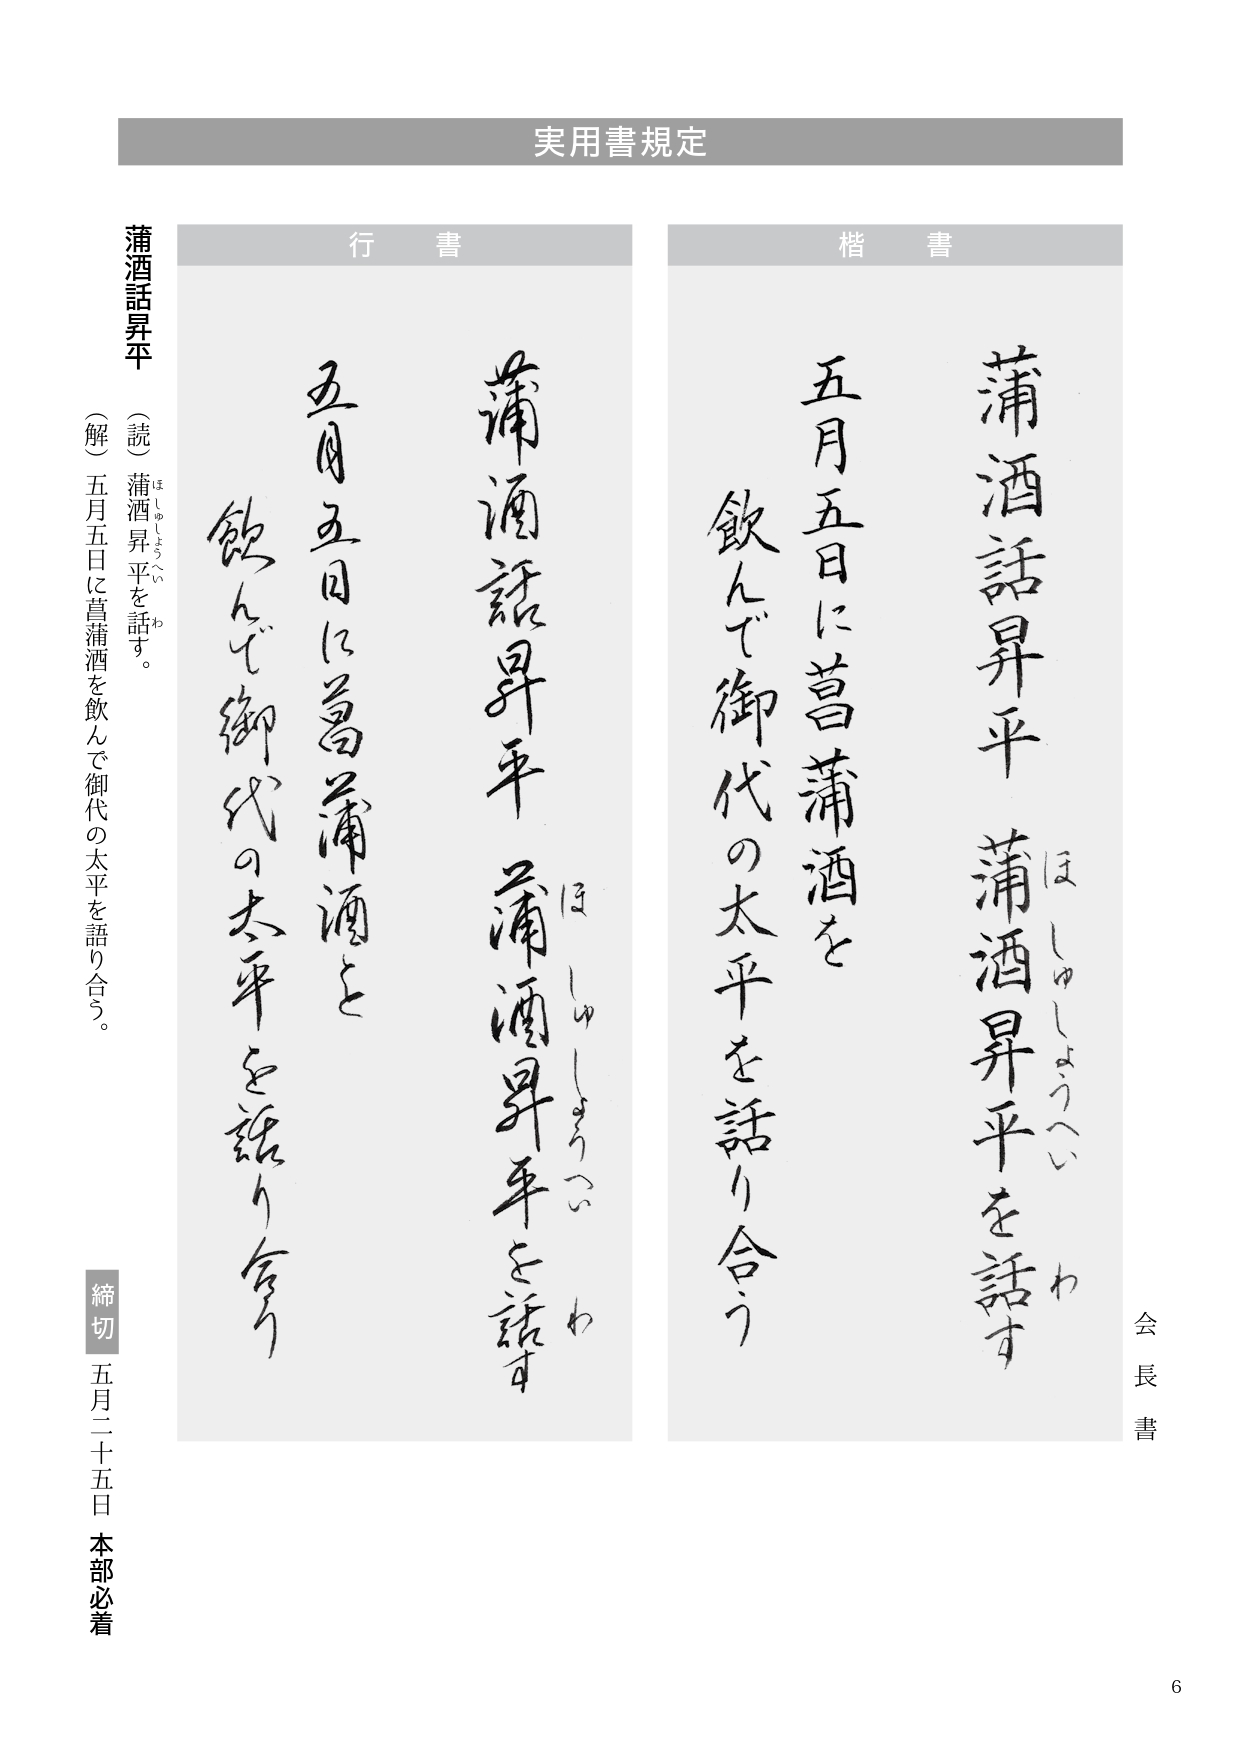 実用書規定
楷書
蒲酒話昇平 蒲酒昇平を話す
ほしゅしょうへい わ
五月五日に菖蒲酒を
飲んで御代の太平を話り合う
会長書
行書
蒲酒話昇平 蒲酒昇平を話す
ほしゅしょうへい わ
五月五日に菖蒲酒を
飲んで御代の太平を話り合う
蒲酒話昇平
（読）蒲酒昇平を話す。
ほしゅしょうへい わ
（解）五月五日に菖蒲酒を飲んで御代の太平を語り合う。
締切 五月二十五日 本部必着
6